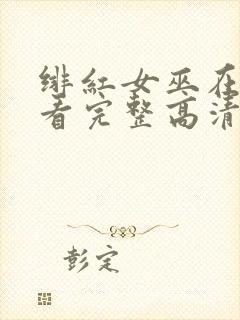 绯红女巫在
看完整高清
彭定